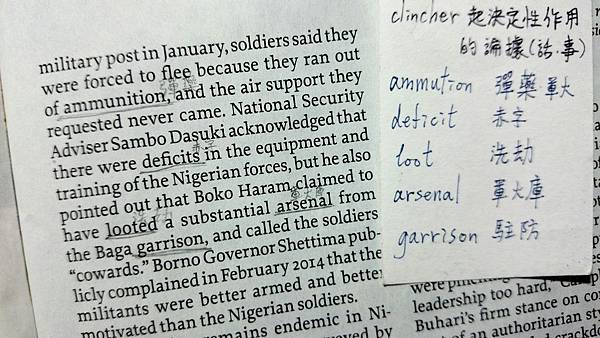 military post in January, soldiers said they
were forced to flee because they ran out
彈藥
of ammunition, and the air support they
requested never came. National Security
Adviser Sambo Dasuki acknowledged that
赤字
there were deficits in the equipment and
training of the Nigerian forces, but he also
pointed out that Boko Haram claimed to
洗劫 軍火庫
have looted a substantial arsenal from
the Baga garrison, and called the soldiers
“cowards.” Borno Governor Shettima pub-
licly complained in February 2014 that the
militants were better armed and better
motivated than the Nigerian soldiers.
remains endemic in Ni-
by
clincher 起決定性作用
的論據(話.事)
ammution 彈藥 軍火
deficit 赤字
loot 洗劫
arsenal 軍火庫
garrison 駐防
were
leadership too hard,
Buhari's firm stance on
of an authoritarian